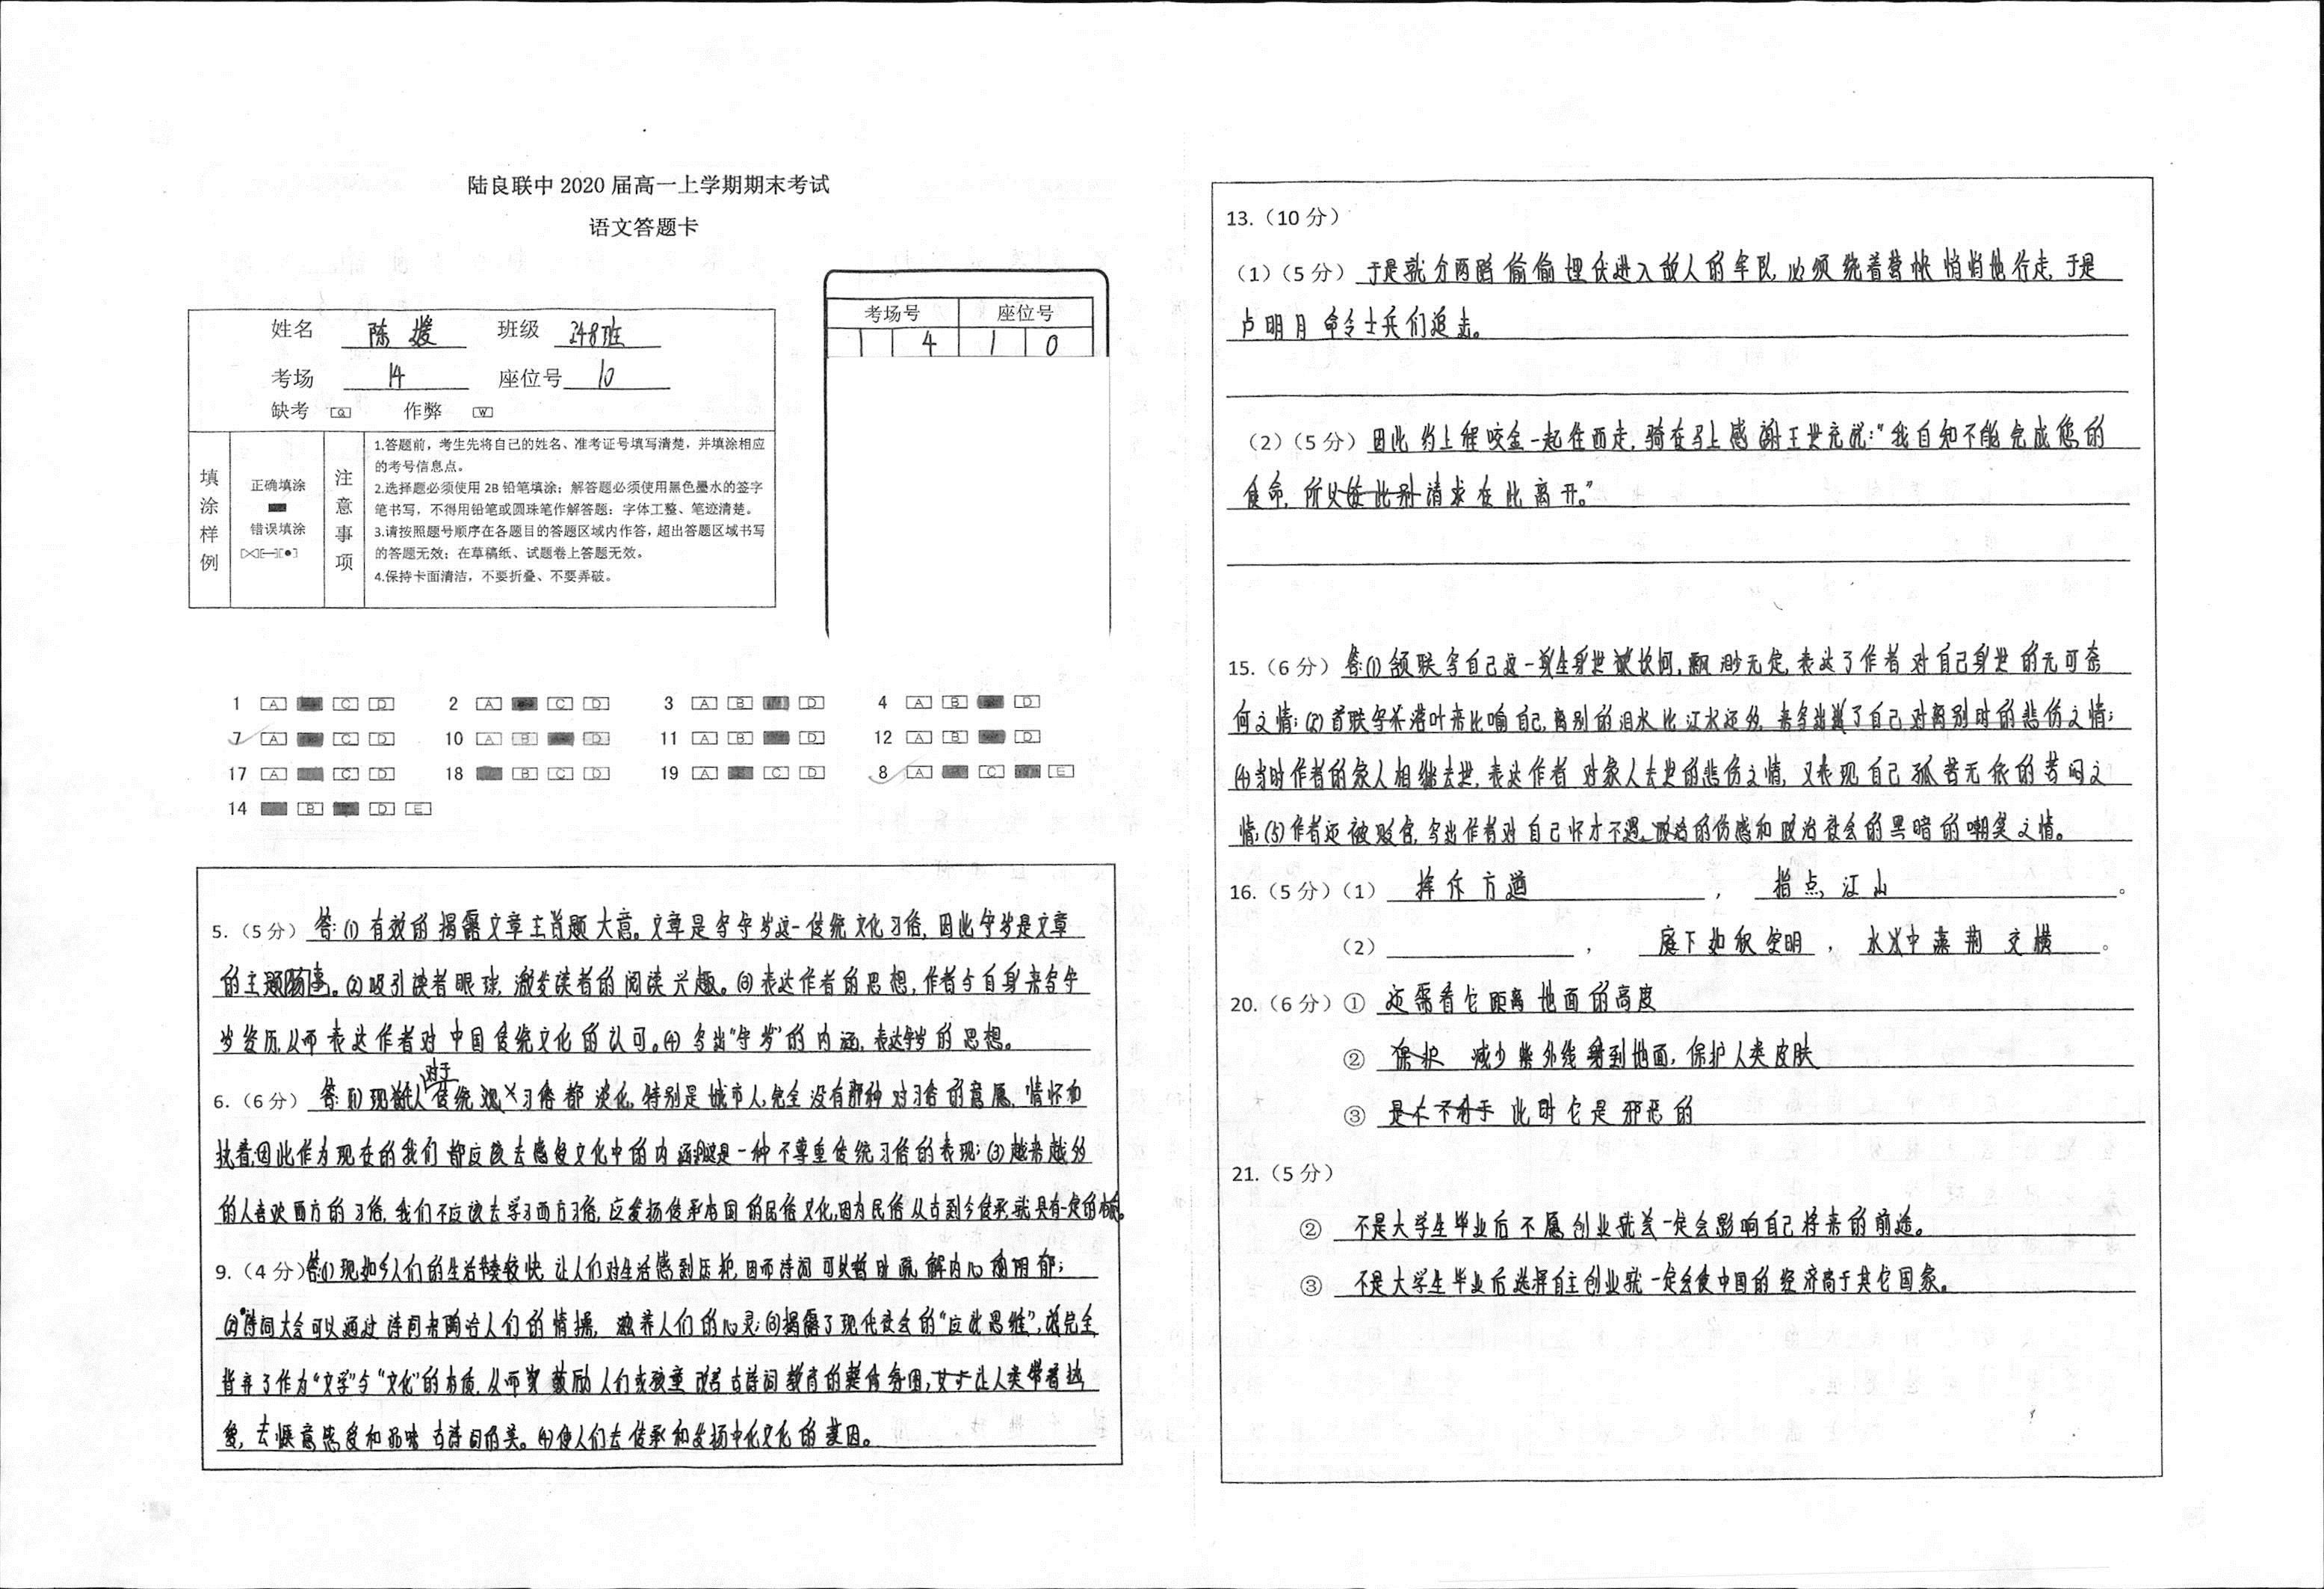 陆良联中 2020 届高一上学期期末考试
语文答题卡
姓名 陈媛 班级 248班
考场 14 座位号 10
缺考 [Q] 作弊 [W]
考场号 座位号
1 4 1 0
填涂样例
正确填涂
错误填涂
注意事项
1.答题前，考生先将自己的姓名、准考证号填写清楚，并填涂相应
的考号信息点。
2.选择题必须使用 2B 铅笔填涂；解答题必须使用黑色墨水的签字
笔书写，不得用铅笔或圆珠笔作解答题；字体工整、笔迹清楚。
3.请按照题号顺序在各题目的答题区域内作答，超出答题区域书写
的答题无效；在草稿纸、试题卷上答题无效。
4.保持卡面清洁，不要折叠、不要弄破。
1 [A] [C] [D] 2 [A] [C] [D] 3 [A] [B] [D] 4 [A] [B] [D]
7 [A] [C] [D] 10 [A] [B] [D] 11 [A] [B] [D] 12 [A] [B] [D]
17 [A] [C] [D] 18 [B] [C] [D] 19 [A] [C] [D] 8 [A] [C] [E]
14 [B] [D] [E]
5.（5分）答:(1)有效的揭露文章主旨题大意。文章是写守岁这一传统文化习俗，因此守岁是文章
的主题。(2)吸引读者眼球，激发读者的阅读兴趣。(3)表达作者的思想，作者与自身来写守
岁经历，从而表达作者对中国传统文化的认可。(4)写出“守岁”的内涵，表达守岁的思想。
6.（6分）答:(1)现人对于传统习俗都淡化，特别是城市人，完全没有那种对习俗的意愿，情怀和
执着，因此作为现在的我们都应该去感受文化中的内涵，这是一种不尊重传统习俗的表现；(3)越来越多
的人喜欢西方的习俗，我们不应该去学习西方习俗，应发扬传承本国的民俗文化，因为民俗从古到今传承，就具有一定的
9.（4分）答:(1)现如今人们的生活节奏较快，让人们对生活感到压抑，因而诗词可以暂时疏解内心的阴郁；
(2)诗词大会可以通过诗词来陶冶人们的情操，滋养人们的心灵；(3)揭露了现代社会的“应试思维”，完全
背弃了作为“文学”与“文化”的本质，从而鼓励人们或孩童改善古诗词教育的整体氛围，让人类带着热
爱，去惬意感受和品味古诗词的美。(4)使人们去传承和发扬中化文化的基因。
13.（10 分）
（1）（5 分）于是就分两路偷偷埋伏进入敌人的军队，必须绕着营帐悄悄地行走，于是
卢明月命令士兵们追击。
（2）（5 分）因此约上程咬金一起往西走，骑在马上感谢王世充说：“我自知不能完成您的
使命，所以请求在此离开。”
15.（6 分）答:(1)颔联写自己这一生身世坎坷，飘渺无定，表达了作者对自己身世的无可奈
何之情；(2)首联写不落叶来比喻自己，离别的泪水比江水还多，来写出了自己对离别时的悲伤之情；
(4)当时作者的家人相继去世，表达作者对家人去世的悲伤之情，又表现自己孤苦无依的苦闷之
情；(5)作者还被贬官，写出作者对自己怀才不遇、政治的伤感和政治社会的黑暗的嘲笑之情。
16.（5 分）（1） 挥斥方遒 ， 指点江山 。
（2） ， 庭下如积空明 ， 水中藻荇交横 。
20.（6 分）① 还需看它距离地面的高度
② 减少紫外线射到地面，保护人类皮肤
③ 此时它是邪恶的
21.（5 分）
② 不是大学生毕业后不愿创业就会一定会影响自己将来的前途。
③ 不是大学生毕业后选择自主创业就一定会使中国的经济高于其它国家。